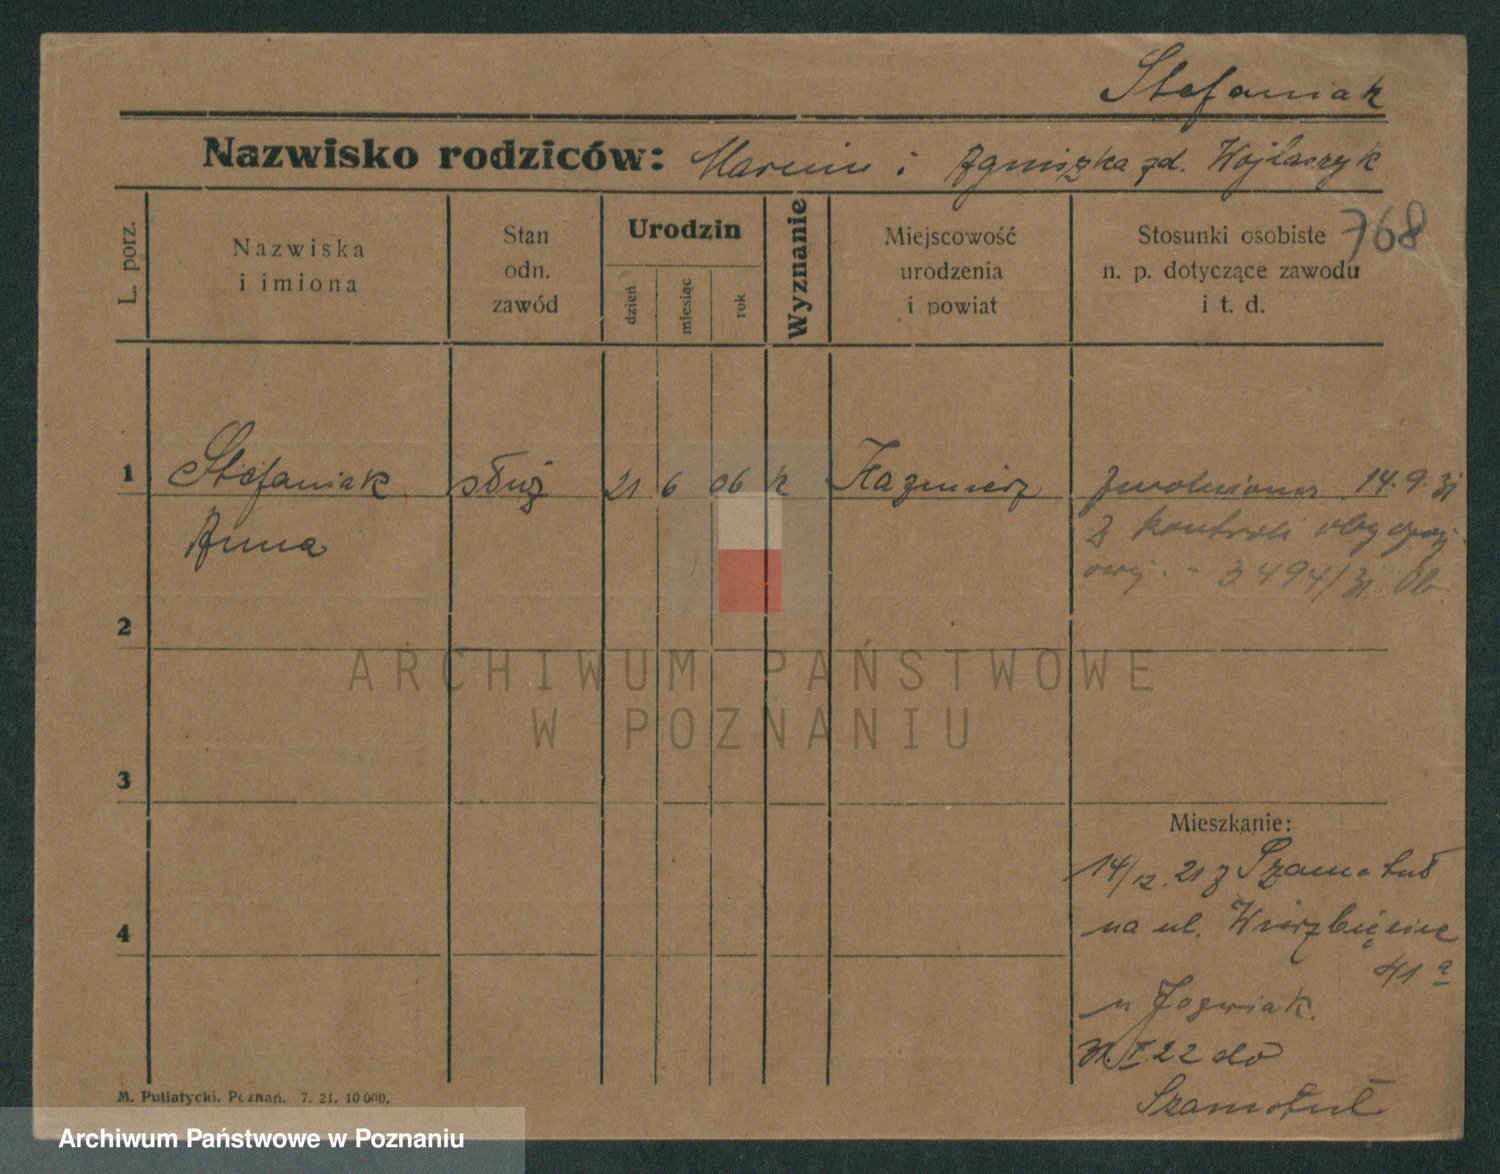 Stefaniak
Nazwisko rodziców: Marcin i Agniszka zd. Wojtaszyk
768
L. porz.
Nazwiska
i imiona
Stan
odn.
zawód
Urodzin
dzień
miesiąc
rok
Wyznanie
Miejscowość
urodzenia
i powiat
Stosunki osobiste
n. p. dotyczące zawodu
i t. d.
1
Stefaniak
Anna
służ
21
6
06
k
Kazmierz
zwolniona 14.9.31
z kontroli
3494/31
2
3
4
Mieszkanie:
14/12.21 z Szamotuł
na ul. Wierzbięcic
41 a
u Jozwiak.
I.22 do
Szamotuł
M. Putiatycki. Poznań. 7. 21. 10 000.
ARCHIWUM PAŃSTWOWE
W POZNANIU
Archiwum Państwowe w Poznaniu